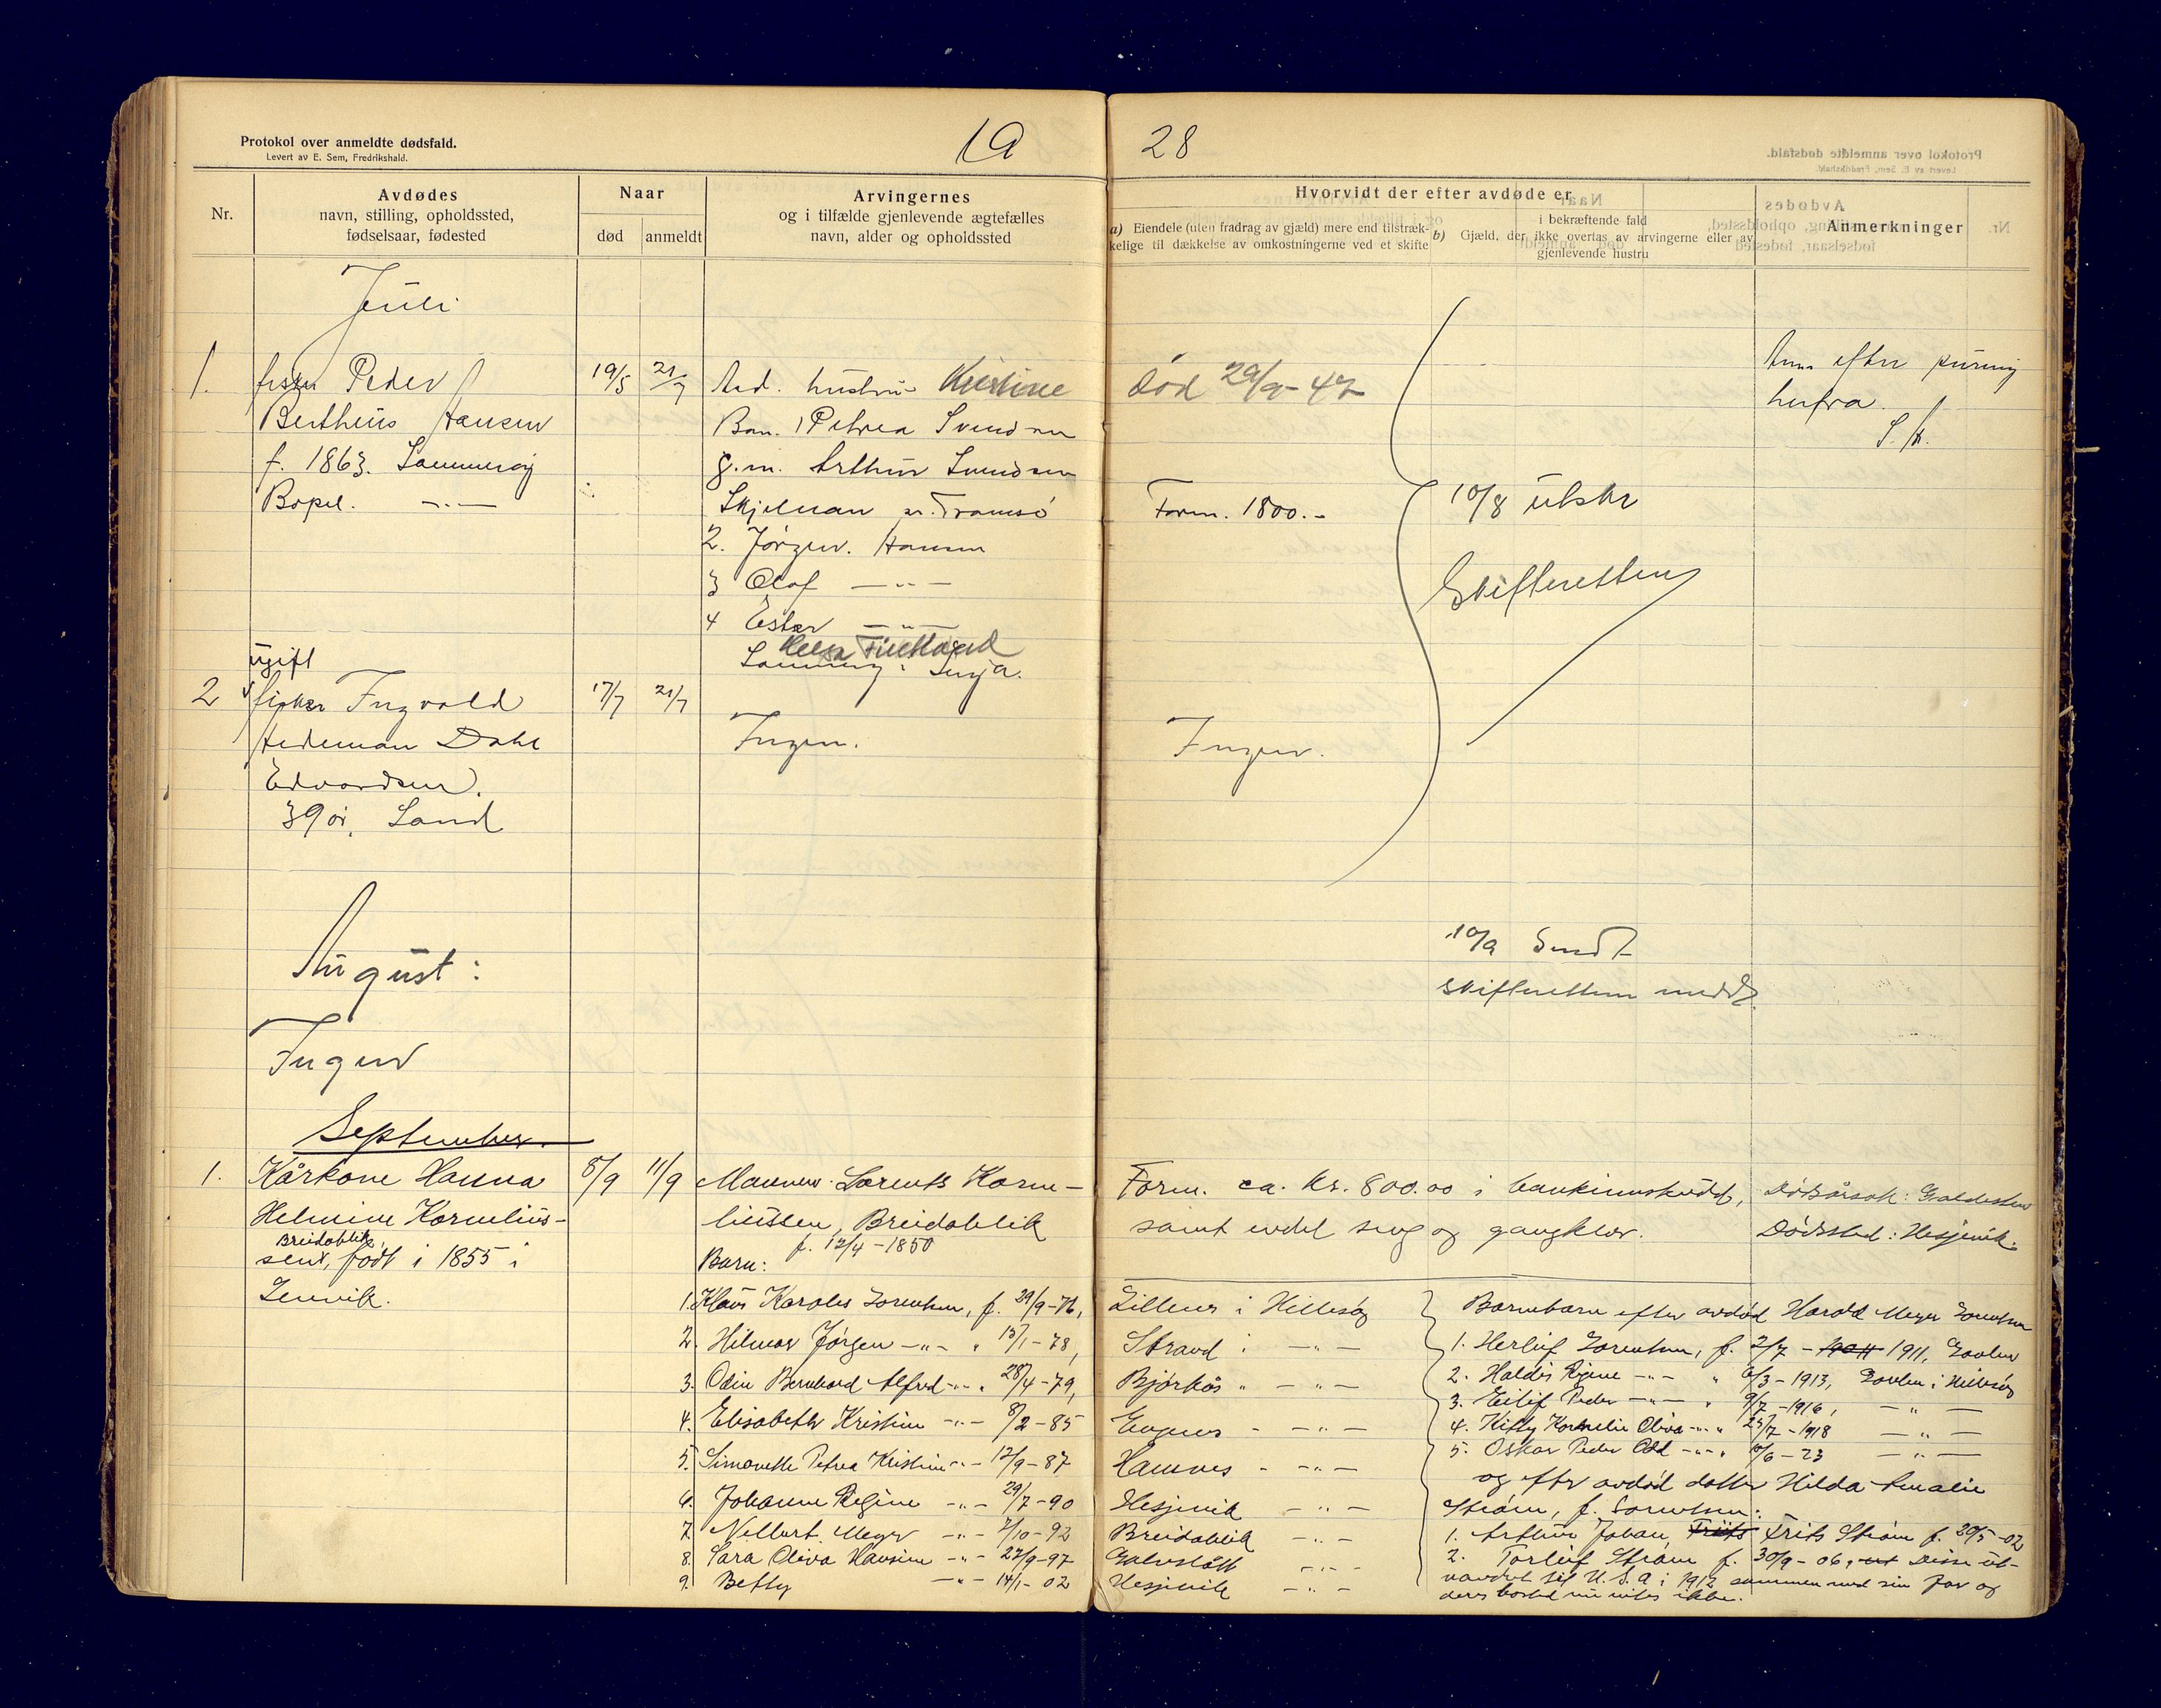 Protokol over anmeldte dødsfald.
Levert av E. Sem, Fredrikshald.
19 28
Nr.
Avdødes
navn, stilling, opholdssted,
fødselsaar, fødested
Naar
død
anmeldt
Arvingernes
og i tilfælde gjenlevende ægtefælles
navn, alder og opholdssted
Hvorvidt der efter avdøde er
a) Eiendele (uten fradrag av gjæld) mere end tilstræk-
kelige til dækkelse av omkostningerne ved et skifte
i bekræftende fald
b) Gjæld, der ikke overtas av arvingerne eller av
gjenlevende hustru
Anmerkninger
Juli
1. fisker Peder 19/5 21/7
Bertheus Hansen
f. 1863. Sommerøy
Bopel. —"—
hustru Kristine død 29/9-47
Barn. 1 Petrea Svendsen
g.m. Arthur Svendsen
Skjelnan pr. Tromsø
2. Jørgen. Hansen
3 Olaf —"—
4 Ester —"—
Sommerøy i Senja.
Form. 1800.-
10/8 utskr
Skifteretten
efter purring
herfra.
S. H.
ugift
2 fisker Ingvold 17/7 21/7
Hedeman Dahl
Edvardsen.
39 år, Sand
Ingen. Ingen.
August:
Ingen
10/9 Sendt
skifteretten medd
September.
1. Kårkone Hanna 8/9 11/9
Helmine Kornelius-
Breidablik,
sen, født i 1855 i
Lenvik.
Mannen Lorents Korne-
liussen, Breidablik
f. 12/4-1850
Barn:
Form. ca. kr. 800.00 i bankinnskudd,
samt endel seng og gangklær.
Dødsårsak: Galdesten
Dødssted: Hesjevik.
1. Klaus Karolus Lorentsen, f. 29/9-76, Lillenes i Hillesøy
2. Hilmar Jørgen —"— " 13/1-78, Strand i —"—
3. Odin Bernhard Alfred —"— " 28/4-79, Bjørkås " —"—
4. Elisabeth Kristine —"— 8/2-85 —"—
5. Simonette Petrea Kristine —"— 12/9-87 Hamnes —"—
6. Johanne Regine —"— 29/7-90 Hesjevik —"—
7. Nelbert Meyer —"— 2/10-92 Breidablik —"—
8. Sara Oliva Hansine —"— 27/9-97 —"—
9. Betty —"— 14/1-02 Hesjevik —"—
Barnebarn efter avdød Harald Meyer Lorentsen
1. Herluf Lorentsen, f. 2/7 - 1911,
2. Haldis Regine —"— " 6/3-1913, i Hillesøy
3. Eilif Peder —"— " 9/7-1916, —"—
4. Kitty Kornelie Oliva —"— " 25/7-1918 —"—
5. Oskar Peder Odd —"— " 10/6-23 —"—
og efter avdød datter Hilda Amalie
Strøm, f. Lorentsen:
1. Arthur Johan Frits Strøm f. 20/5-02
2. Torleif Strøm f. 30/9-06, Disse ut-
vandret til U.S.A i 1912 sammen med sin far og
deres bosted nu vites ikke.